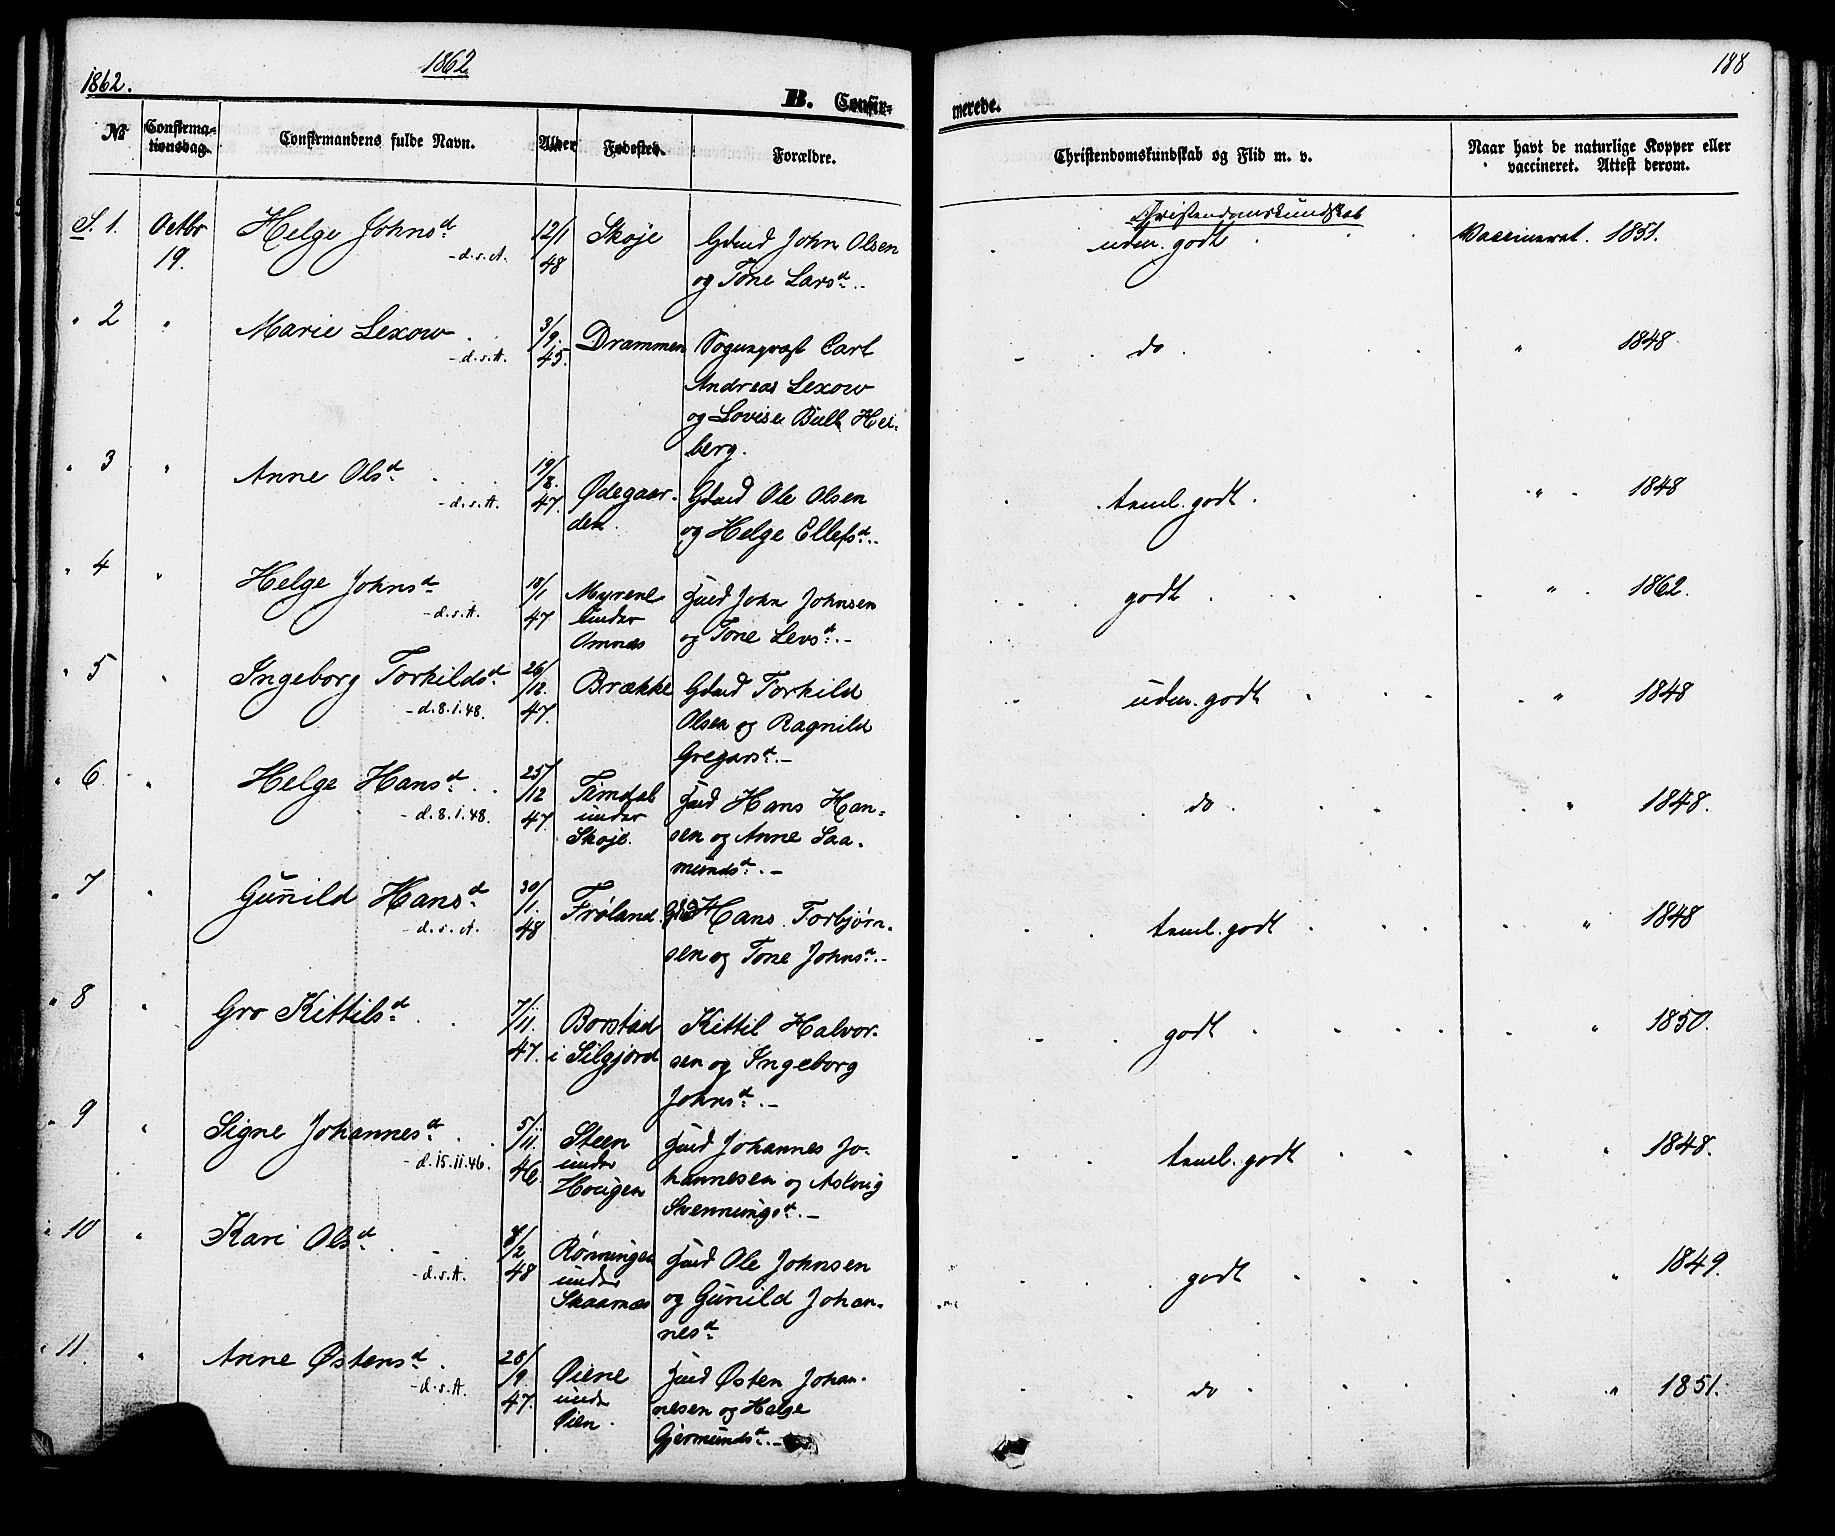 1862
1862.
188
B. Confir-
merede.
№
Confirma-
tionsdag.
Confirmandens fulde Navn.
Alder
Fødested.
Forældre.
Christendomskundskab og Flid m. v.
Naar havt de naturlige Kopper eller
vaccineret. Attest derom.
S. 1. Octbr Helge Johnsd 12/1 Skoje Gbmd John Olsen Christendomskundskab
19. - d. s. A. 48 og Tone Larsd udm. godt Vaccineret. 1851.
" 2 " Marie Lexow 3/9 Drammen Sognepræst Carl do " 1848
- d. s. A. 45. Andreas Lexow
og Lovise Bull Hei-
berg.
" 3 " Anne Olsd 19/8 Ødegaar- Gbmd Ole Olsen taml. godt " 1848
- d. s. A. 47. den. og Helge Ellefsd
" 4 " Helge Johnsd 18/1 Myrene John Johnsen godt " 1862.
- d. s. A. 47 under og Tone
Omnæs
" 5 " Ingeborg Torkildsd 26/12 Brække Gbmd Torkild udm. godt " 1848
- d. 8.1.48. 47. Olsen og Ragnild
Gregarsd. -
" 6 " Helge Hansd 25/12 under Hans Han- do " 1848.
- d. 8.1.48. 47. Skoje. sen og Anne Saa-
mundsd. -
" 7 " Gunild Hansd 30/1 Frøland Hans Torbjørn- taml. godt " 1848
- d. s. A. 48 sen og Tone Johnsd. -
" 8 " Gro Kittilsd 7/11. Borstad Kittil Halvor- godt " 1850.
47. i Silgjord sen og Ingeborg
Johnsd. -
" 9 " Signe Johannesd 5/11. Steen Johannes Jo- taml. godt " 1848.
- d. 15.11.46. 46. under hannesen og Asloug
Hougen Svenningsd. -
" 10 " Kari Olsd /2 Rønningen Ole Johnsen godt " 1849.
- d. s. A. 48 under og Gunild Johan-
Skaarnæs nesd
" 11. " Anne Østensd 28/9. Øiene Østen Johan- do " 1851.
- d. s. A. 47. under nesen og Helge
Øien. Gjermundsd. -